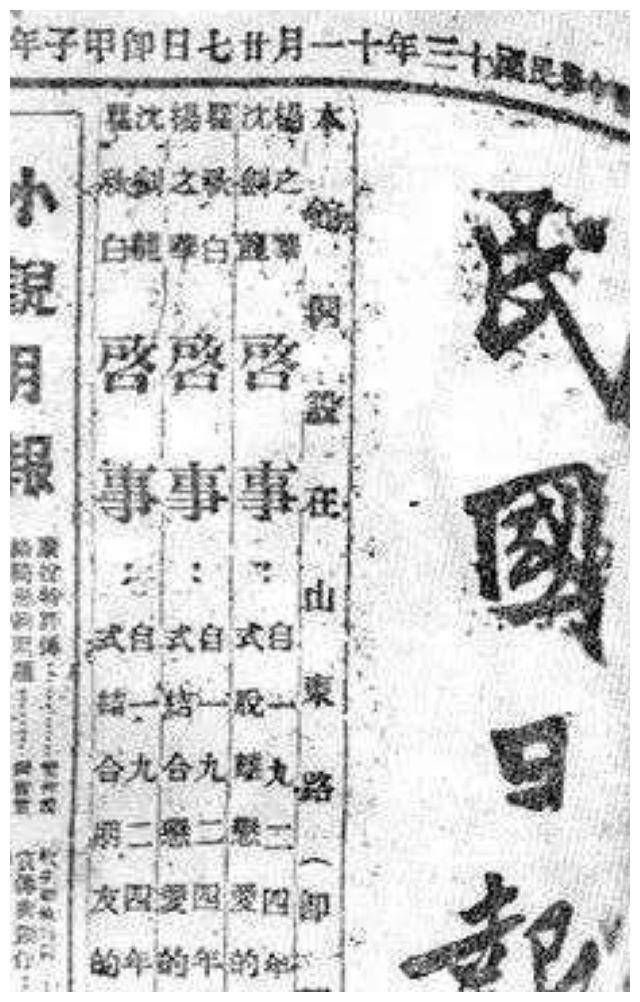 中華民國十三年十一月廿七日即甲子年
民國日報
本館開設在山東路（即
楊之華
沈劍龍
啓事
：
自一九二四年
式脫離戀愛的
瞿秋白
楊之華
啓事
：
自一九二四年
式結合戀愛的
沈劍龍
瞿秋白
啓事
：
自一九二四年
式結合朋友的
小說月報